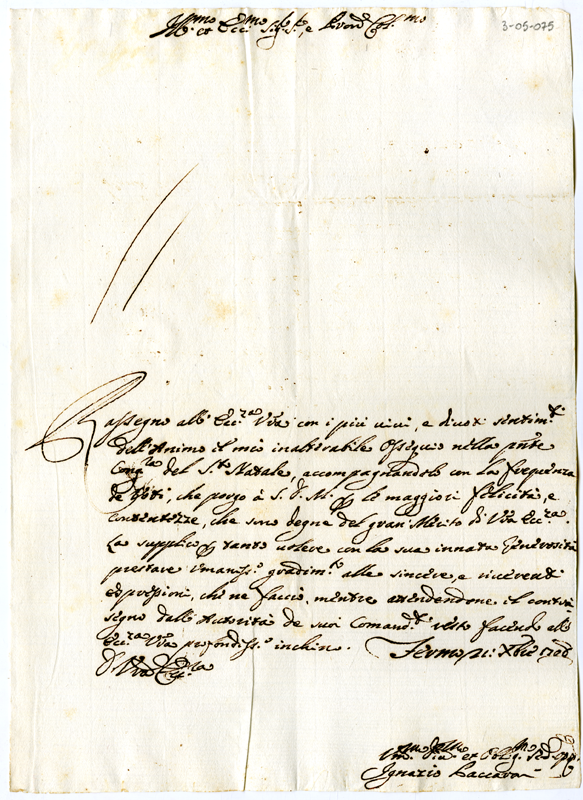 Ill.mo et Ecc.mo Sig.r Sig.r, e P'ron Col.mo
3-05-075
Rassegno all' Ecc.za V'ra con i più vivi, e divoti sentim.ti
dell'Animo il mio inalterabile Ossequio nella p'nte
del S.to Natale, accompagnandolo con la frequenza
de Voti, che porgo à S. D. M. per le maggiori felicità, e
contentezze, che sono degne del gran Merito di V'ra Ecc.za.
La supplico per tanto volere con la sua innata Generosità
prestare umaniss.o gradim.to alle sincere, e riverenti
espressioni, che ne faccio, mentre attendendone il contra
segno dall'Autorità de suoi Comand.ti resto facendo all'
Ecc.za V'ra profondiss.o inchino. Fermo 21: Xbre
Di V'ra Ecc.za
Ignazio